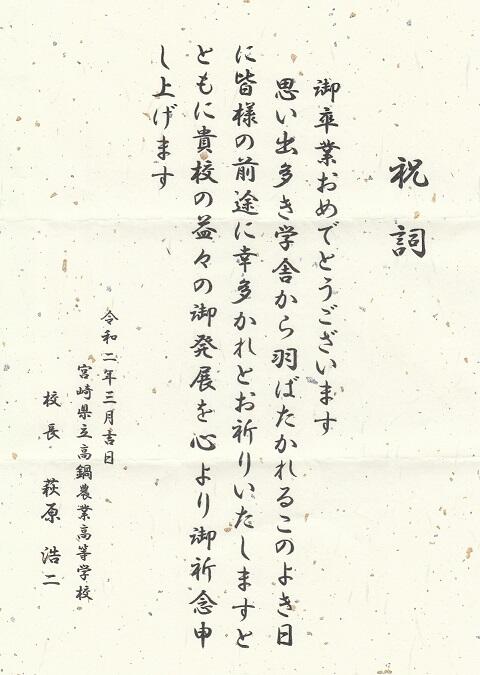 祝詞
御卒業おめでとうございます
思い出多き学舎から羽ばたかれるこのよき日
に皆様の前途に幸多かれとお祈りいたしますと
ともに貴校の益々の御発展を心より御祈念申
し上げます
令和二年三月吉日
宮崎県立高鍋農業高等学校
校長 萩原浩二